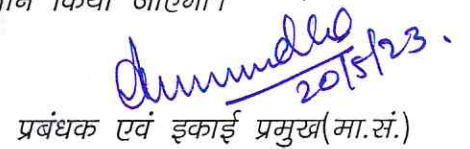 किया जाएगा।
20/5/23.
प्रबंधक एवं इकाई प्रमुख(मा.सं.)